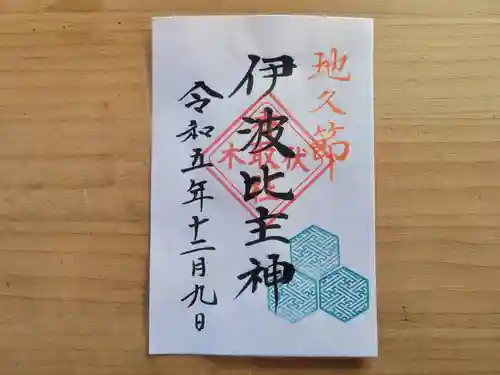 地久節
伊波比主神
令和五年十二月九日